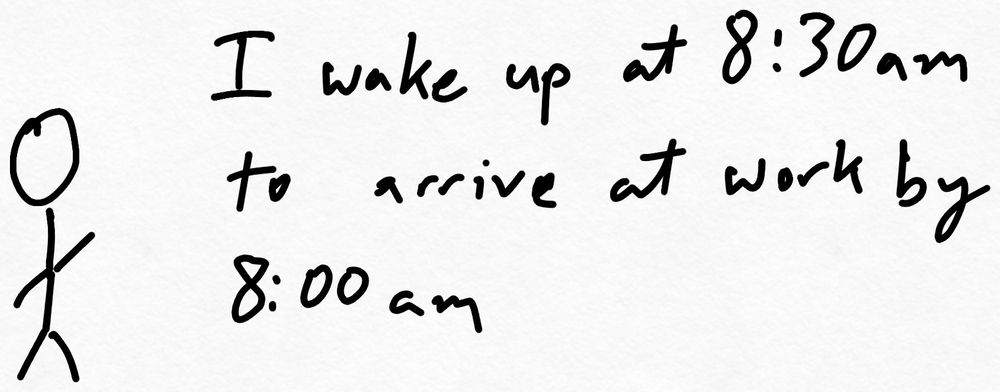 I wake up at 8:30am
to arrive at work by
8:00 am